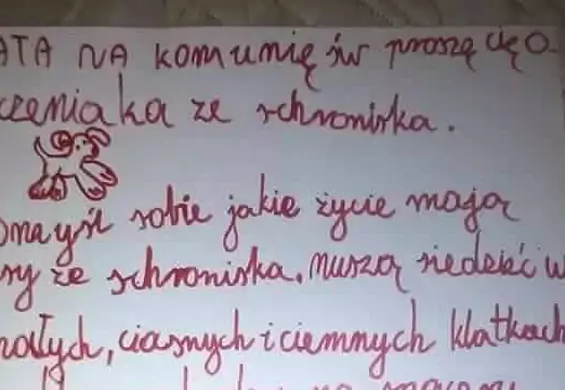 ATA NA komunię św proszę cię o
czeniaka ze schroniska.
omyśl sobie jakie życie mają
sy ze schroniska. muszą siedzieć w
małych, ciasnych i ciemnych klatkach